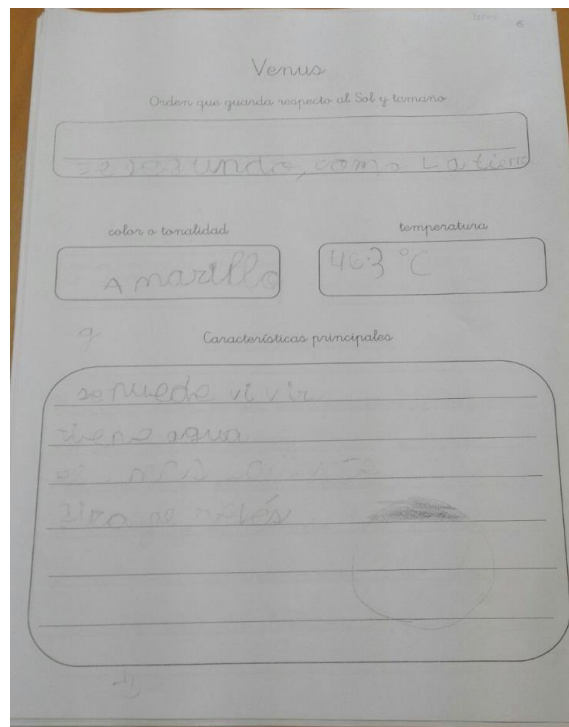 6
Venus
Orden que guarda respecto al Sol y tamaño
segundo, como La tierra
color o tonalidad
temperatura
Amarillo
463 °C
Características principales
se puede vivir
tiene agua
gira al revés